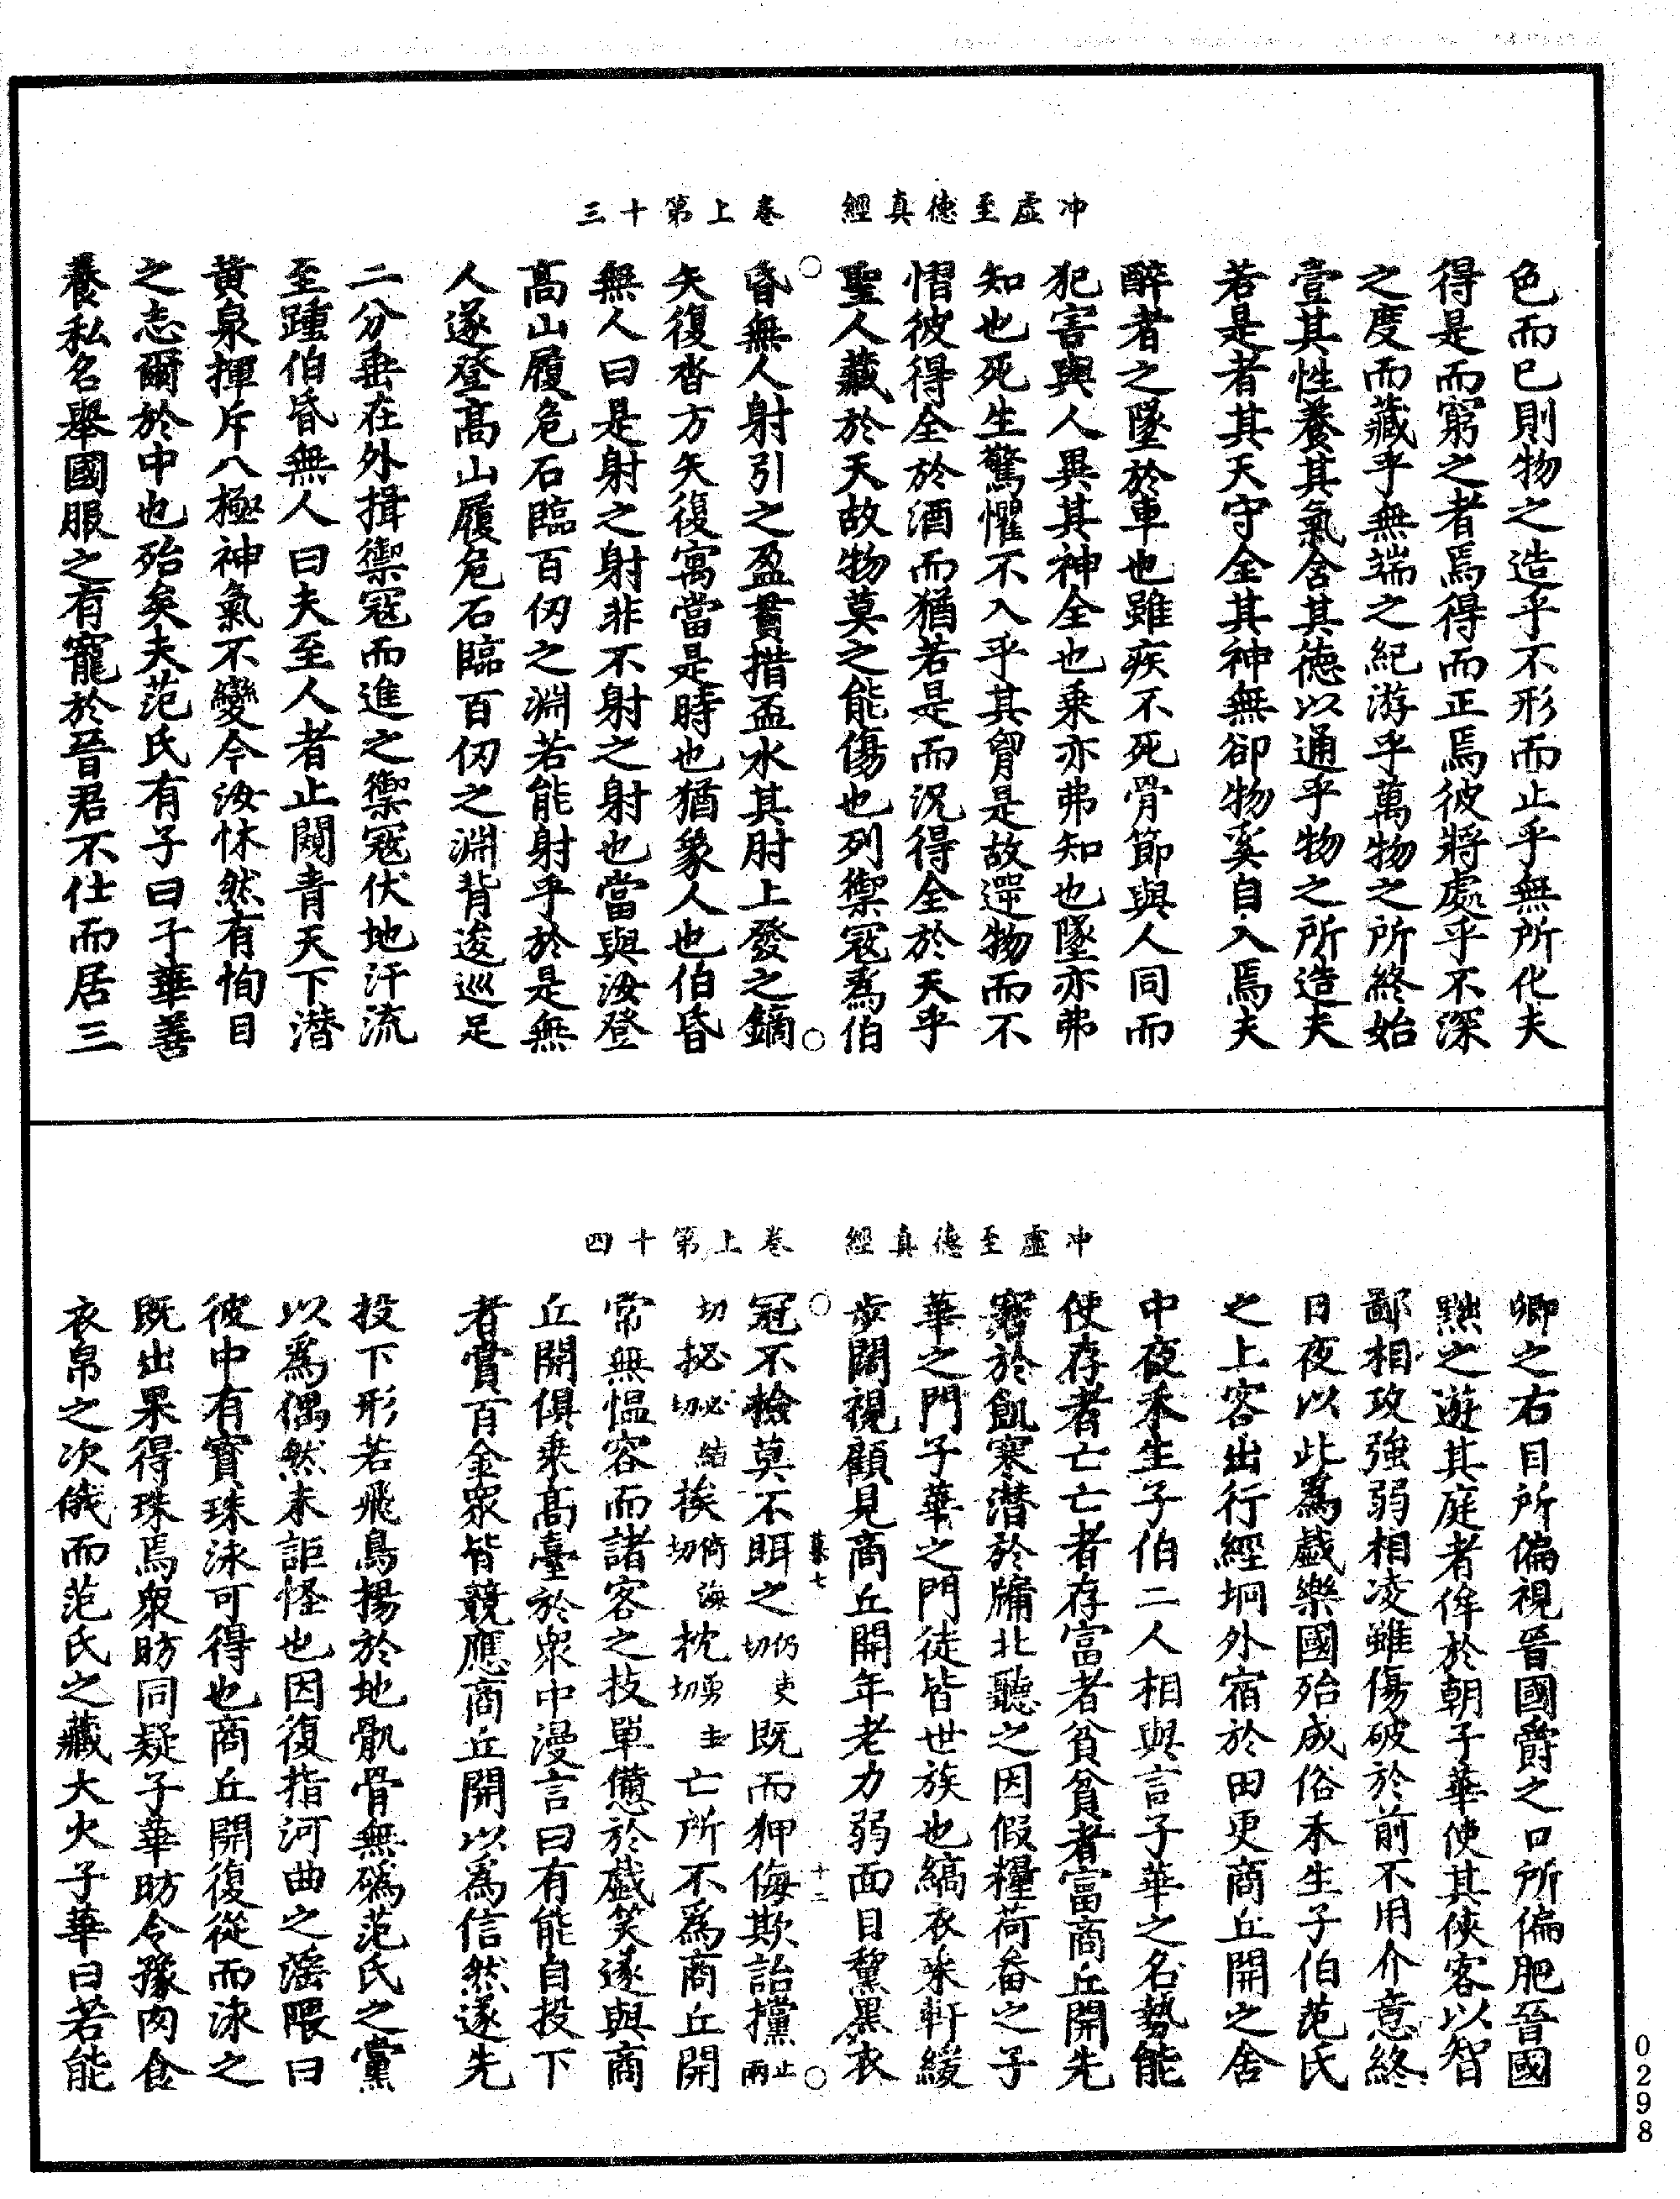 冲虛至德真經　卷上第十三
色而已則物之造乎不形而止乎無所化夫
得是而窮之者焉得而正焉彼將處乎不深
之度而藏乎無端之紀游乎萬物之所終始
壹其性養其氣含其德以通乎物之所造夫
若是者其天守全其神無郤物奚自入焉夫
醉者之墜於車也雖疾不死骨節與人同而
犯害與人異其神全也乘亦弗知也墜亦弗
知也死生驚懼不入乎其胷是故遻物而不
慴彼得全於酒而猶若是而況得全於天乎
聖人藏於天故物莫之能傷也列禦寇爲伯
昏無人射引之盈貫措盃水其肘上發之鏑
矢復沓方矢復寓當是時也猶象人也伯昏
無人曰是射之射非不射之射也當與汝登
高山履危石臨百仞之淵若能射乎於是無
人遂登高山履危石臨百仞之淵背逡巡足
二分垂在外揖禦寇而進之禦寇伏地汗流
至踵伯昏無人曰夫至人者上闚青天下潜
黃泉揮斥八極神氣不變今汝怵然有恂目
之志爾於中也殆矣夫范氏有子曰子華善
養私名舉國服之有寵於晉君不仕而居三
冲虛至德真經　卷上第十四
卿之右目所偏視晉國爵之口所偏肥晉國
黜之遊其庭者侔於朝子華使其俠客以智
鄙相攻強弱相凌雖傷破於前不用介意終
日夜以此爲戲樂國殆成俗禾生子伯范氏
之上客出行經坰外宿於田更商丘開之舍
中夜禾生子伯二人相與言子華之名勢能
使存者亡亡者存富者貧貧者富商丘開先
窘於飢寒潜於牖北聽之因假糧荷畚之子
華之門子華之門徒皆世族也縞衣乘軒緩
步闊視顧見商丘開年老力弱面目黧黑衣
慕七　十二
冠不檢莫不眲之仍吏切既而狎侮欺詒攩止兩
切㧙必結切挨倚海切抌勇主切亡所不爲商丘開
常無慍容而諸客之技單憊於戲笑遂與商
丘開俱乘高臺於衆中漫言曰有能自投下
者賞百金衆皆競應商丘開以爲信然遂先
投下形若飛鳥揚於地骪骨無䃣范氏之黨
以爲偶然未詎怪也因復指河曲之滛隈曰
彼中有寶珠泳可得也商丘開復從而泳之
既出果得珠焉衆昉同疑子華昉令豫肉食
衣帛之次俄而范氏之藏大火子華曰若能
0298